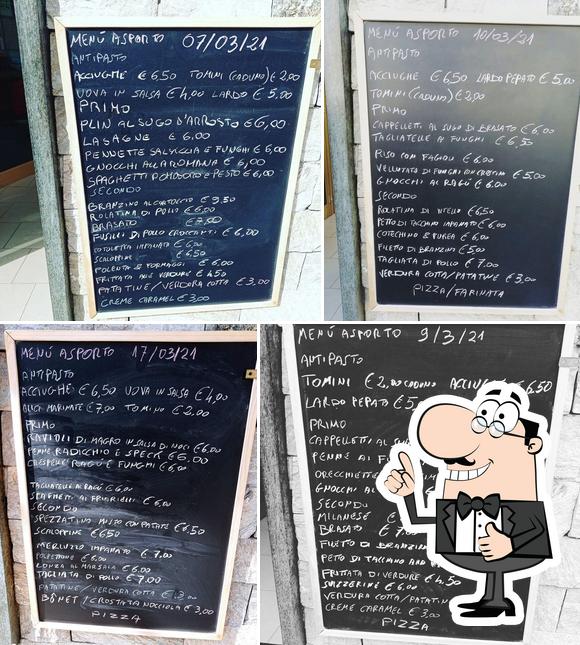 MENÚ ASPORTO 07/03/21
ANTIPASTO
ACCIUGHE € 6,50 TOMINI (CADUNO) € 2,00
UOVA IN SALSA € 4,00 LARDO € 5,00
PRIMO
PLIN AL SUGO D'ARROSTO € 6,00
LASAGNE € 6.00
PENDETTE SALSICCIA E FUNGHI € 6,00
GNOCCHI ALLA ROMANA € 6,00
SPAGHETTI POMODORO E PESTO € 6,00
SECONDO
BRANZINO AL CARTOCCIO € 9.50
ROLATINA DI POLLO € 6,00
BRASATO € 7,00
FUSILI DI POLLO CROCCANTI € 6,00
COTOLETTA IMPANATO € 6,00
SCALOPPINE € 6.50
POLENTA & FORMAGGI € 6,00
FRITTATA ALLE VERDURE € 4,50
PATATINE/VERDURA COTTA € 3,00
CREME CARAMEL € 3,00
MENÚ ASPORTO 10/03/21
ANTIPASTO
ACCIUGHE € 6,50 LARDO PEPATO € 5,00
TOMINI (CADUNO) € 2,00
PRIMO
CAPPELLETTI AL SUGO DI BRASATO € 6,00
TAGLIATELLE AI FUNGHI € 6,50
RISO CON FAGIOLI € 6,00
VELLUTATA DI FUNGHI CON CROSTINI € 5,00
GNOCCHI AL RAGÚ € 6,00
SECONDO
ROLATINA DI VITELLO € 6,50
PETTO DI TACCHINO IMPANATO € 6,00
COTECHINO & PUREA € 6,00
FILETO DI BRANZINI € 5,00
TAGLIATA DI POLLO € 7,00
VERDURA COTTA/PATATINE € 3,00
PIZZA/FARINATA
MENÚ ASPORTO 17/03/21
ANTIPASTO
ACCIUGHE € 6,50 UOVA IN SALSA € 4,00
ALICI MARINATE € 7,00 TOMINO € 2,00
PRIMO
RAVIOLI DI MAGRO IN SALSA DI NOCI € 6,00
PENNE RADICCHIO E SPECK € 6,00
CRESPELLE RAGÚ E FUNGHI € 6,00
TAGLIATELLE AL RAGÚ € 6,00
SPAGHETTI AI FRIARIELLI € 6,00
SECONDO
SPEZZATINO MISTO CON PATATE € 6,50
SCALOPPINE € 6,50
MERLUZZO IMPANATO € 7,00
POLPETTONE € 6,00
LONZA AL MARSALA € 6,00
TAGLIATA DI POLLO € 7.00
PATATINE/VERDURA COTTA € 3,00
BÔNET/CROSTATA NOCCIOLA € 3,00
PIZZA
MENÚ ASPORTO 9/3/21
ANTIPASTO
TOMINI € 2,00 CADUNO ACCIUGHE € 6,50
LARDO PEPATO € 5
PRIMO
CAPPELLETTI AL
PENNE AI
ORECCHIETTE
GNOCCHI AL
SECONDO
MILANESE €
BRASATO € 7
FILETO DI BRANZINI
PETO DI TACCHINO
FRITTATA DI VERDURE € 4,50
SVIZZERINE € 6,00
VERDURA COTTA/PATATIN
CREME CARAMEL € 3,00
PIZZA